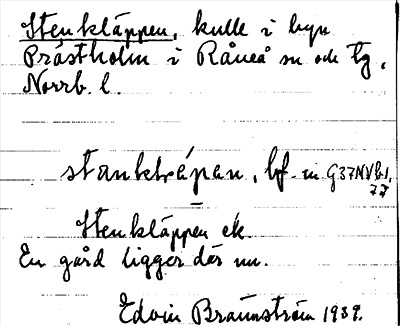 Stenkläppen, kulle i byn
Prästholm i Råneå sn och tg,
Norrb. l.
stankträpan, bf. m G37NVb1,
77
Stenkläppen ek.
En gård ligger där nu.
Edvin Brännström 1939.